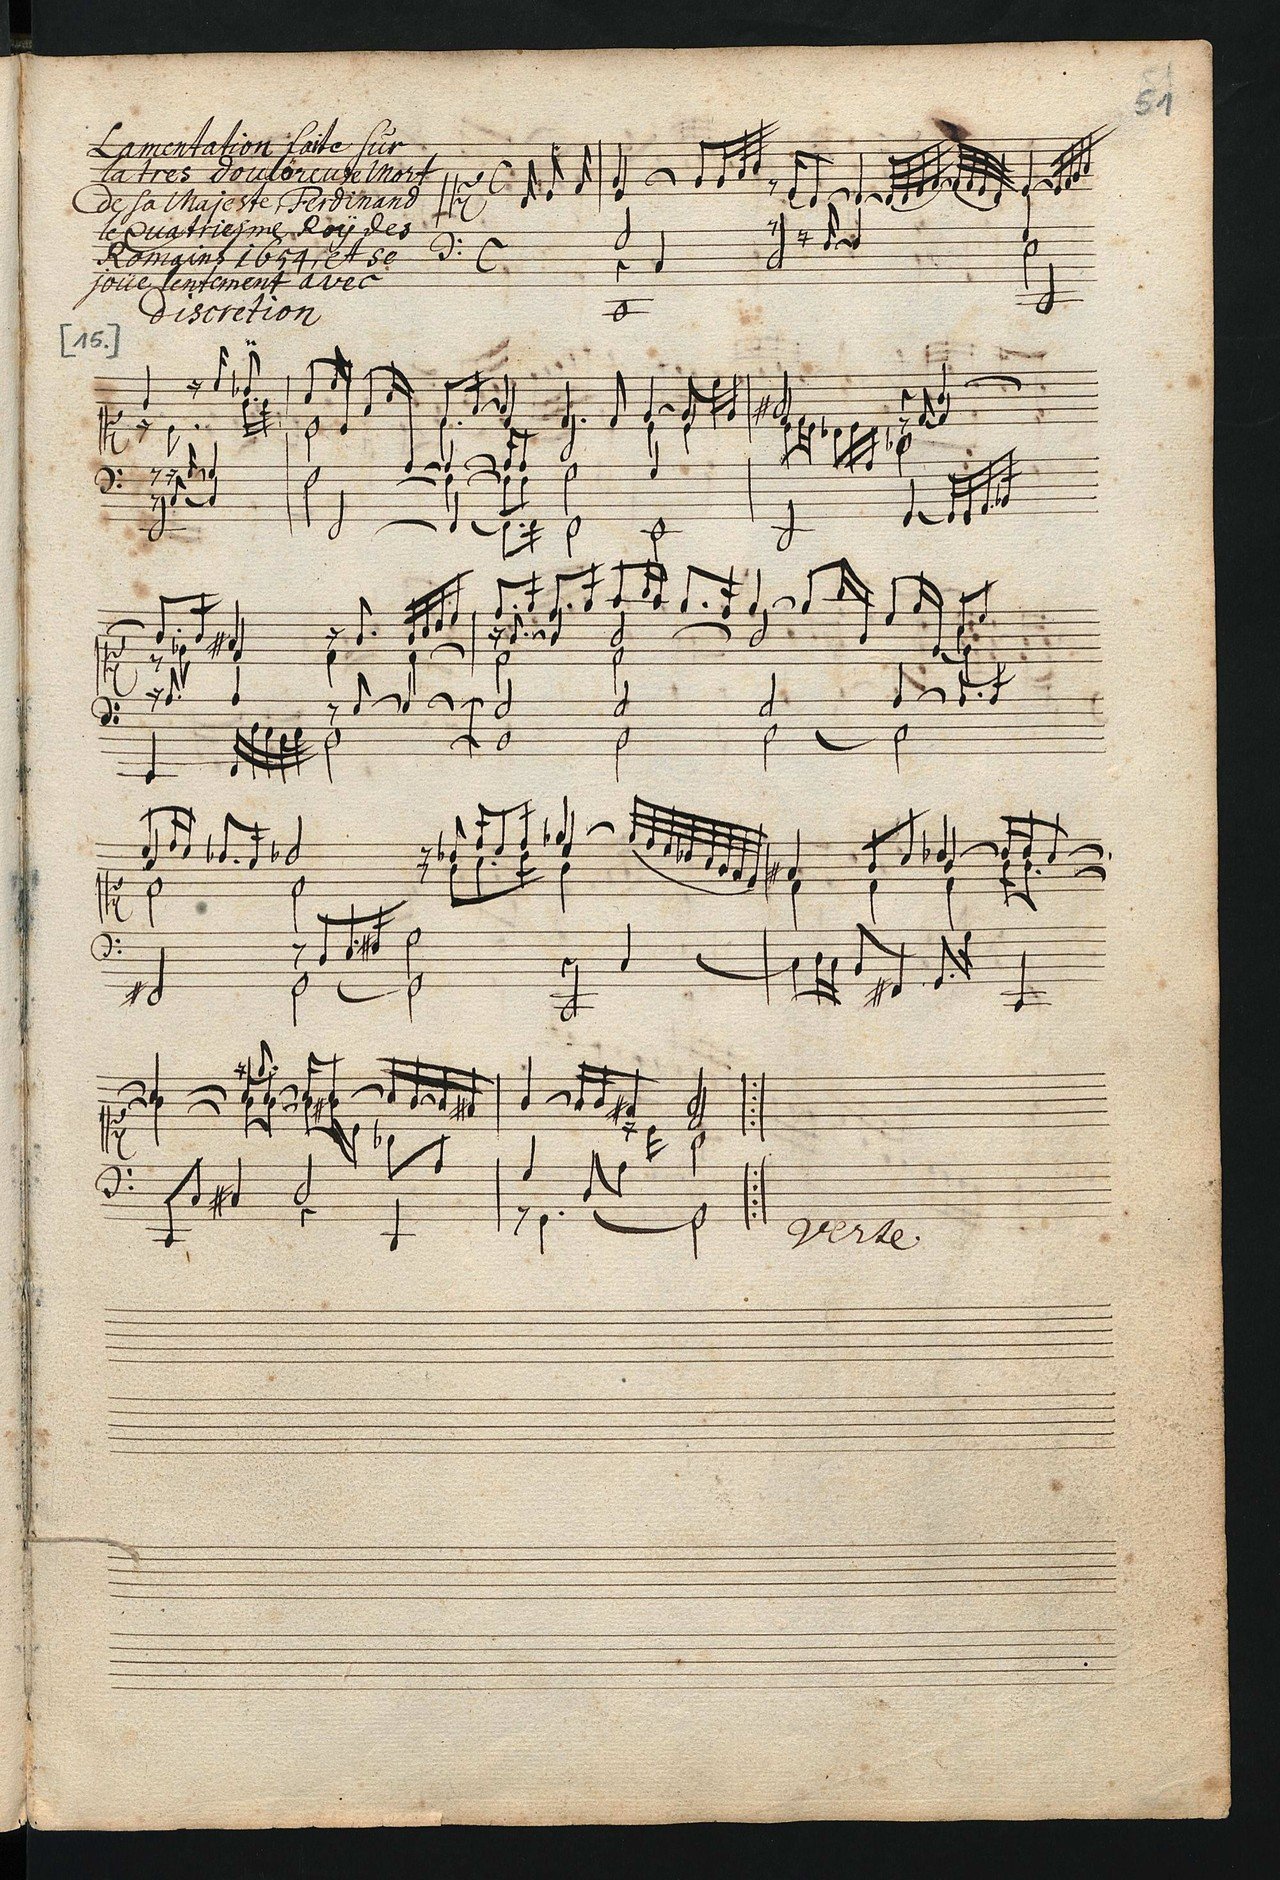 51
51
Lamentation faite sur
la tres douloreuse Mort
de sa Majeste, Ferdinand
le Quatriesme Roÿ des
Romains 1654, et se
joüe lentement avec
discretion
[15.]
verte